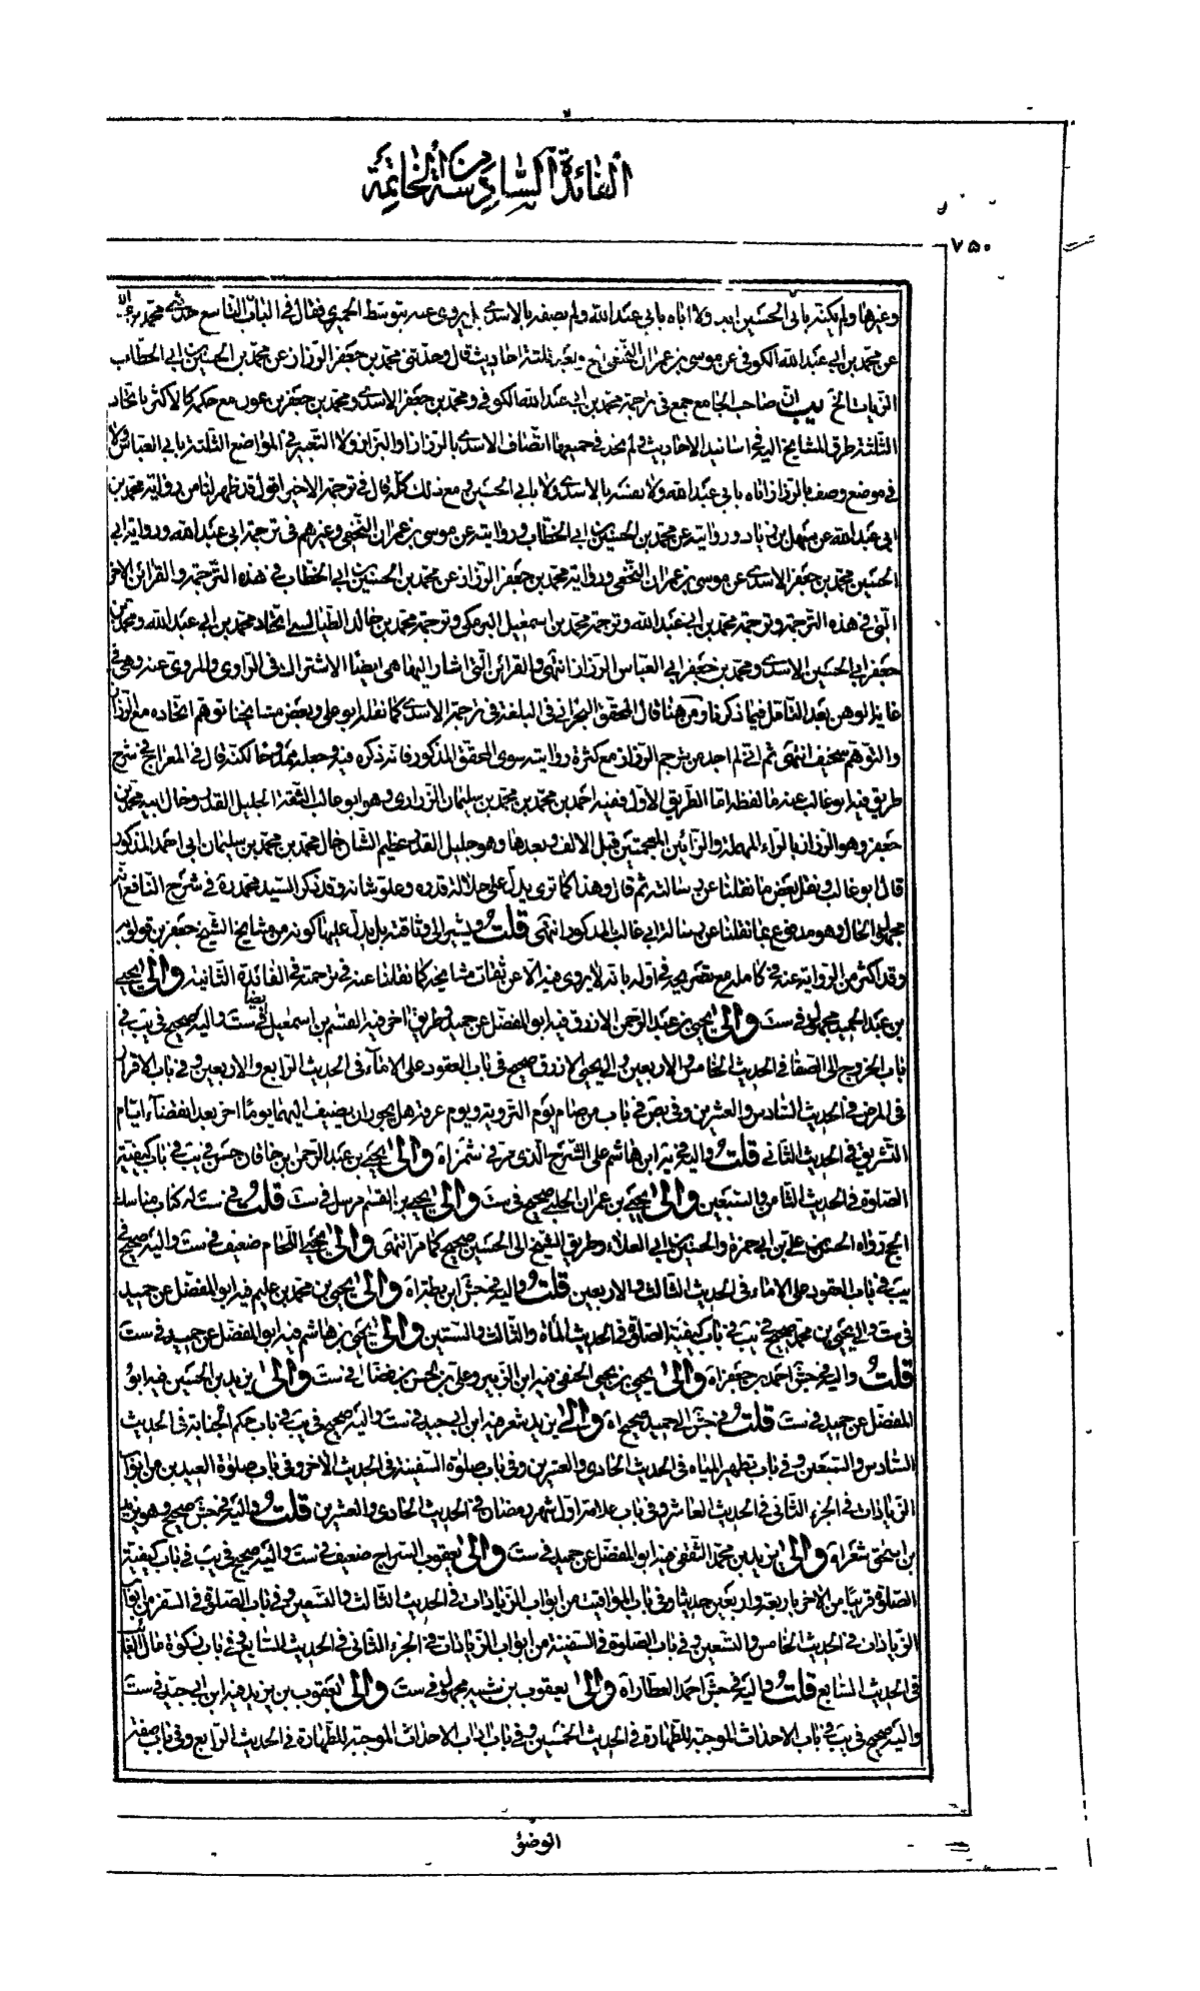 الفائدة السادسة من الخاتمة
٧٥٠
وغيرها ولم يكنه بابى الحسين ابدا ولا اباه بابى عبد الله ولم يصفه بالاسدى بل يروى عنه بتوسط الحميرى فقال فى الباب التاسع حدثنى محمد بن عبد الله
عن محمد بن ابى عبد الله الكوفى عن موسى بن عمران النخعى الخ وبعد ثلثة احاديث قال وحدثنى محمد بن جعفر الرزاز عن محمد بن الحسين بن ابى الخطاب
الزيات الخ ان صاحب الجامع جمع فى ترجمة محمد بن ابى عبد الله الكوفى ومحمد بن جعفر الاسدى ومحمد بن جعفر بن عون مع حكمه كالاكثر باتحاد
الثلثة طرق المشايخ اليه فى اسانيد الاحاديث ولم نجد فى جميعها اتصاف الاسدى بالرزاز او البزاز ولا التعبير فى المواضع الثلثة بابى العباس ولا
فى موضع وصف بالرزاز اباه بابى عبد الله ولا نفسه بالاسدى ولا بابى الحسين ومع ذلك كله قال فى ترجمة الاخير اقول قد ظهر لنا من رواية محمد بن
ابى عبد الله عن سهل بن زياد وروايته عن محمد بن الحسين بن ابى الخطاب وروايته عن موسى بن عمران النخعى وغيرهم فى ترجمة ابى عبد الله ورواية ابى
الحسين محمد بن جعفر الاسدى عن موسى بن عمران النخعى ورواية محمد بن جعفر الرزاز عن محمد بن الحسين بن ابى الخطاب فى هذه الترجمة والقرائن الاخر
التى فى هذه الترجمة وترجمة محمد بن ابى عبد الله وترجمة محمد بن اسمعيل البرمكى وترجمة محمد بن خالد الطيالسى اتحاد محمد بن ابى عبد الله ومحمد بن
جعفر ابى الحسين الاسدى ومحمد بن جعفر ابى العباس الرزاز انتهى والقرائن التى اشار اليها هى ايضا الاشتراك فى الراوى والمروى عنه وهى فى
غاية الوهن بعد التأمل فيما ذكرنا ومن هنا قال المحقق البحرانى فى البلغة فى ترجمة الاسدى كما نقله ابو على وبعض مشايخنا توهم اتحاده مع الرزاز
والتوهم سخيف انتهى ثم انى لم اجد من ترجم الرزاز مع كثرة روايته سوى المحقق المذكور فانه ذكره فيه وجعله ممدوحا لكنه قال فى المعراج فى شرح
طريق فيه ابو غالب عنه ما لفظه اما الطريق الاول ففيه احمد بن محمد بن محمد بن سليمان الزرارى وهو ابو غالب الثقة الجليل القدر وخال ابيه محمد بن
جعفر وهو الرزاز بالراء المهملة والزائين المعجمتين قبل الالف وبعدها وهو جليل القدر عظيم الشان خال محمد بن محمد بن سليمان ابى احمد المذكور
قال ابو غالب ونقل بعض ما نقلنا عن رسالته ثم قال وهذا كما ترى يدل على جلالة قدره وعلو شانه وقد ذكر السيد محمد ره فى شرح النافع انه
مجهول الحال وهو مدفوع بما نقلنا عن رسالة ابى غالب المذكور انتهى قلت ويشير الى وثاقته بل يدل عليها كونه من مشايخ الشيخ جعفر بن قولويه
وقد اكثر من الرواية عنه فى كامله مع تصريحه فى اوله بانه لا يروى فيه الا عن ثقات مشايخه كما نقلنا عنه فى ترجمته فى الفائدة الثانية والى يحيى
بن عبد الحميد مجهول فى ست والى يحيى بن عبد الرحمن الازرق فيه ابو المفضل عن حميد وطريق اخر فيه القسم بن اسمعيل ايضا فى ست واليه صحيح فى يب فى
باب الخروج الى الصفا فى الحديث الخامس والاربعين والى يحيى الازرق صحيح فى باب العقود على الاماء فى الحديث الرابع والاربعين وفى باب الاقرار
فى المرض فى الحديث السادس والعشرين وفى بص فى باب من صام يوم التروية ويوم عرفة هل يجوز ان يضيف اليهما يوما اخر بعد انقضاء ايام
التشريق فى الحديث الثانى قلت واليه فى يه ابن هاشم على الشرح الذى مر فى شمزاه والى يحيى بن عبد الرحمن بن خاقان حسن فى يب فى باب كيفية
الصلوة فى الحديث الثامن والسبعين والى يحيى بن عمران الحلبى صحيح فى ست والى يحيى بن القسم مرسل فى ست قلت فى ست له كتاب مناسك
الحج رواه الحسين بن على بن ابى حمزة والحسين بن ابى العلاء وطريق الشيخ الى الحسين صحيح كما مر انتهى والى يحيى اللحام ضعيف فى ست واليه صحيح فى
يب فى باب العقود على الاماء فى الحديث الثالث والاربعين قلت واليه فى جش ابن بطة اه والى يحيى بن محمد بن عليم فيه ابو المفضل عن حميد
فى ست والى يحيى بن محمد صحيح فى يب فى باب كيفية الصلوة فى الحديث المائة والثالث والستين والى يحيى بن هاشم فيه ابو المفضل عن حميد فى ست
قلت واليه فى جش احمد بن جعفر اه والى يحيى بن يحيى الحنفى فيه ابن الزبير وعلى بن الحسن بن فضال فى ست والى يزيد بن الحسين فيه ابو
المفضل عن حميد فى ست قلت فى جش الى حميد صحيح اه والى يزيد شعر فيه ابن ابى جيد فى ست واليه صحيح فى يب فى باب حكم الجنابة فى الحديث
السادس والتسعين وفى باب تطهير المياه فى الحديث الحادى والعشرين وفى باب صلوة السفينة فى الحديث الاخر وفى باب صلوة العيدين من ابواب
الزيادات فى الجزء الثانى فى الحديث العاشر وفى باب علامة اول شهر رمضان فى الحديث الحادى والعشرين قلت واليه فى جش صحيح وهو يزيد
بن اسحق شعر اه والى يزيد بن محمد الثقفى فيه ابو المفضل عن حميد فى ست والى يعقوب السراج ضعيف فى ست واليه صحيح فى يب فى باب كيفية
الصلوة قريبا من الاخر باربعة واربعين حديثا وفى باب المواقيت من ابواب الزيادات فى الحديث الثالث والتسعين وفى باب الصلوة فى السفر من ابواب
الزيادات فى الحديث الخامس والتسعين وفى باب الصلوة فى السفينة من ابواب الزيادات فى الجزء الثانى فى الحديث السابع وفى باب زكوة مال الغائب
فى الحديث السابع قلت واليه فى جش احمد العطار اه والى يعقوب بن شيبه مجهول فى ست والى يعقوب بن يزيد فيه ابن ابى جيد فى ست
واليه صحيح فى يب فى باب الاحداث الموجبة للطهارة فى الحديث الخمسين وفى باب اداب الاحداث الموجبة للطهارة فى الحديث الرابع وفى باب صفة
الوضوء